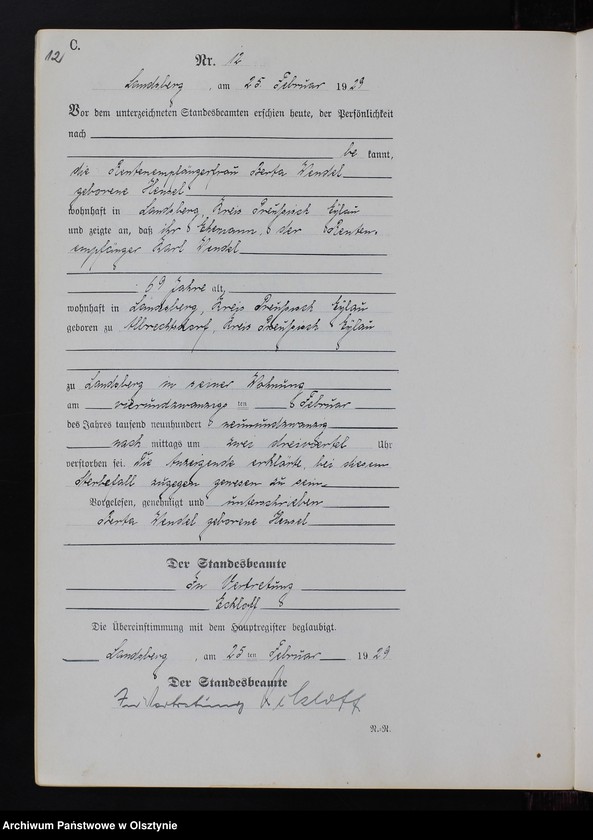 12
C.
Nr. 12
Landsberg, am 25 Februar 1929
Vor dem unterzeichneten Standesbeamten erschien heute, der Persönlichkeit
nach
be kannt,
die Rentenempfängerfrau Berta Wendel
geborene Hensel
wohnhaft in Landsberg, Kreis Preußisch Eylau
und zeigte an, daß ihr Ehemann, der Renten-
empfänger Karl Wendel
69 Jahre alt,
wohnhaft in Landsberg, Kreis Preußisch Eylau
geboren zu Albrechtsdorf, Kreis Preußisch Eylau
zu Landsberg in seiner Wohnung
am vierundzwanzig ten Februar
des Jahres tausend neunhundert neunundzwanzig
nach mittags um zwei dreiviertel Uhr
verstorben sei. Die Anzeigende erklärte, bei diesem
Sterbefall zugegen gewesen zu sein.
Vorgelesen, genehmigt und unterschrieben
Berta Wendel geborene Hensel
Der Standesbeamte
In Vertretung
Die Übereinstimmung mit dem Hauptregister beglaubigt.
Landsberg, am 25 ten Februar 1929
Der Standesbeamte
In Vertretung
R.-R.
Archiwum Państwowe w Olsztynie